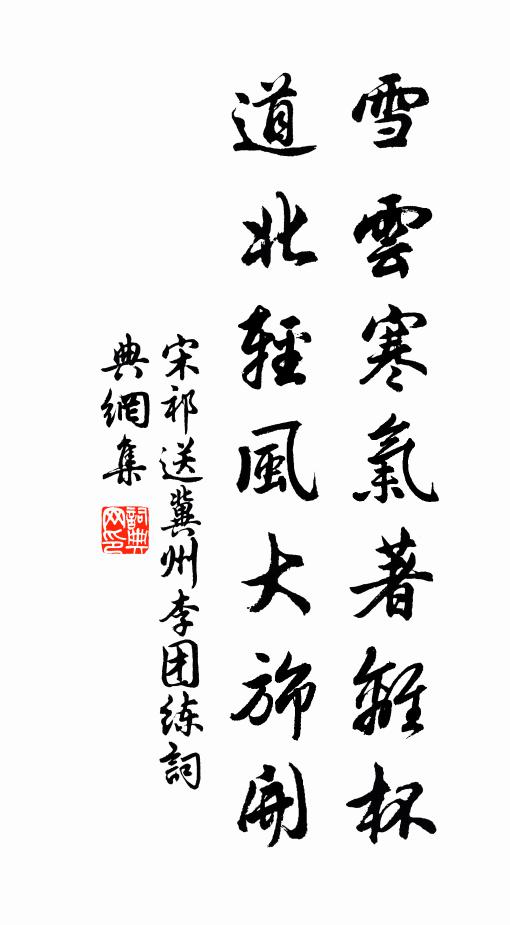 雪雲寒氣著離杯
道北輕風大斾開
宋祁送冀州李团练詞
典網集
詞典
网印